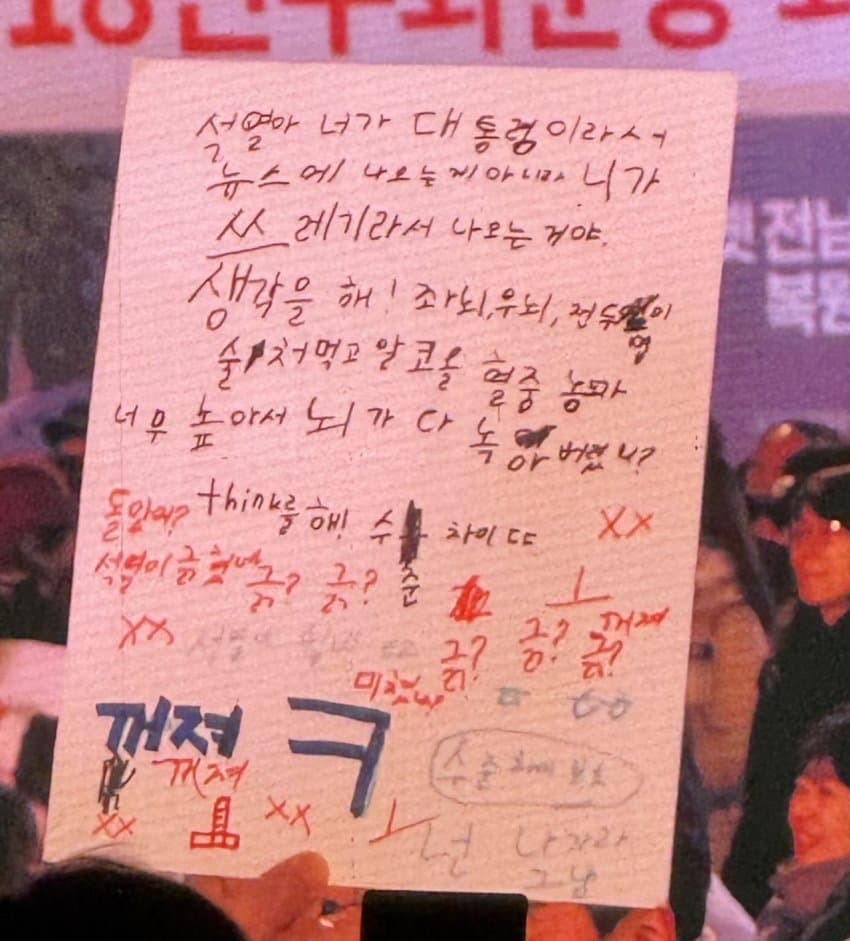 석열아 너가 대통령이라서
뉴스에 나오는게 아니라 니가
쓰레기라서 나오는 거야.
생각을 해! 좌뇌, 우뇌, 전두엽이
술 처먹고 알코올 혈중 농도가
너무 높아서 뇌가 다 녹아버렸니?
think를 해! 수준 차이 ㄸ
돌았어?
XX
석열이 긁혔네
긁? 긁?
ㅗ
XX
긁? 긁? 긁?
꺼져
미쳤나
꺼져 ㅋ
꺼져
XX
ㅗ
XX
ㅗ
넌 나가라
그냥
전남